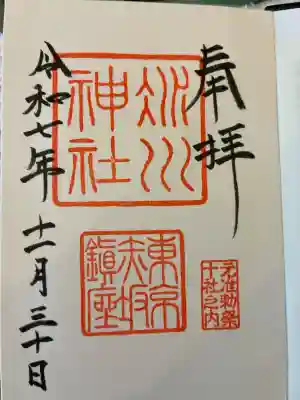 奉拝
氷川
神社
東京
赤坂
鎮座
元准勅祭
十社之内
令和七年十一月三十日